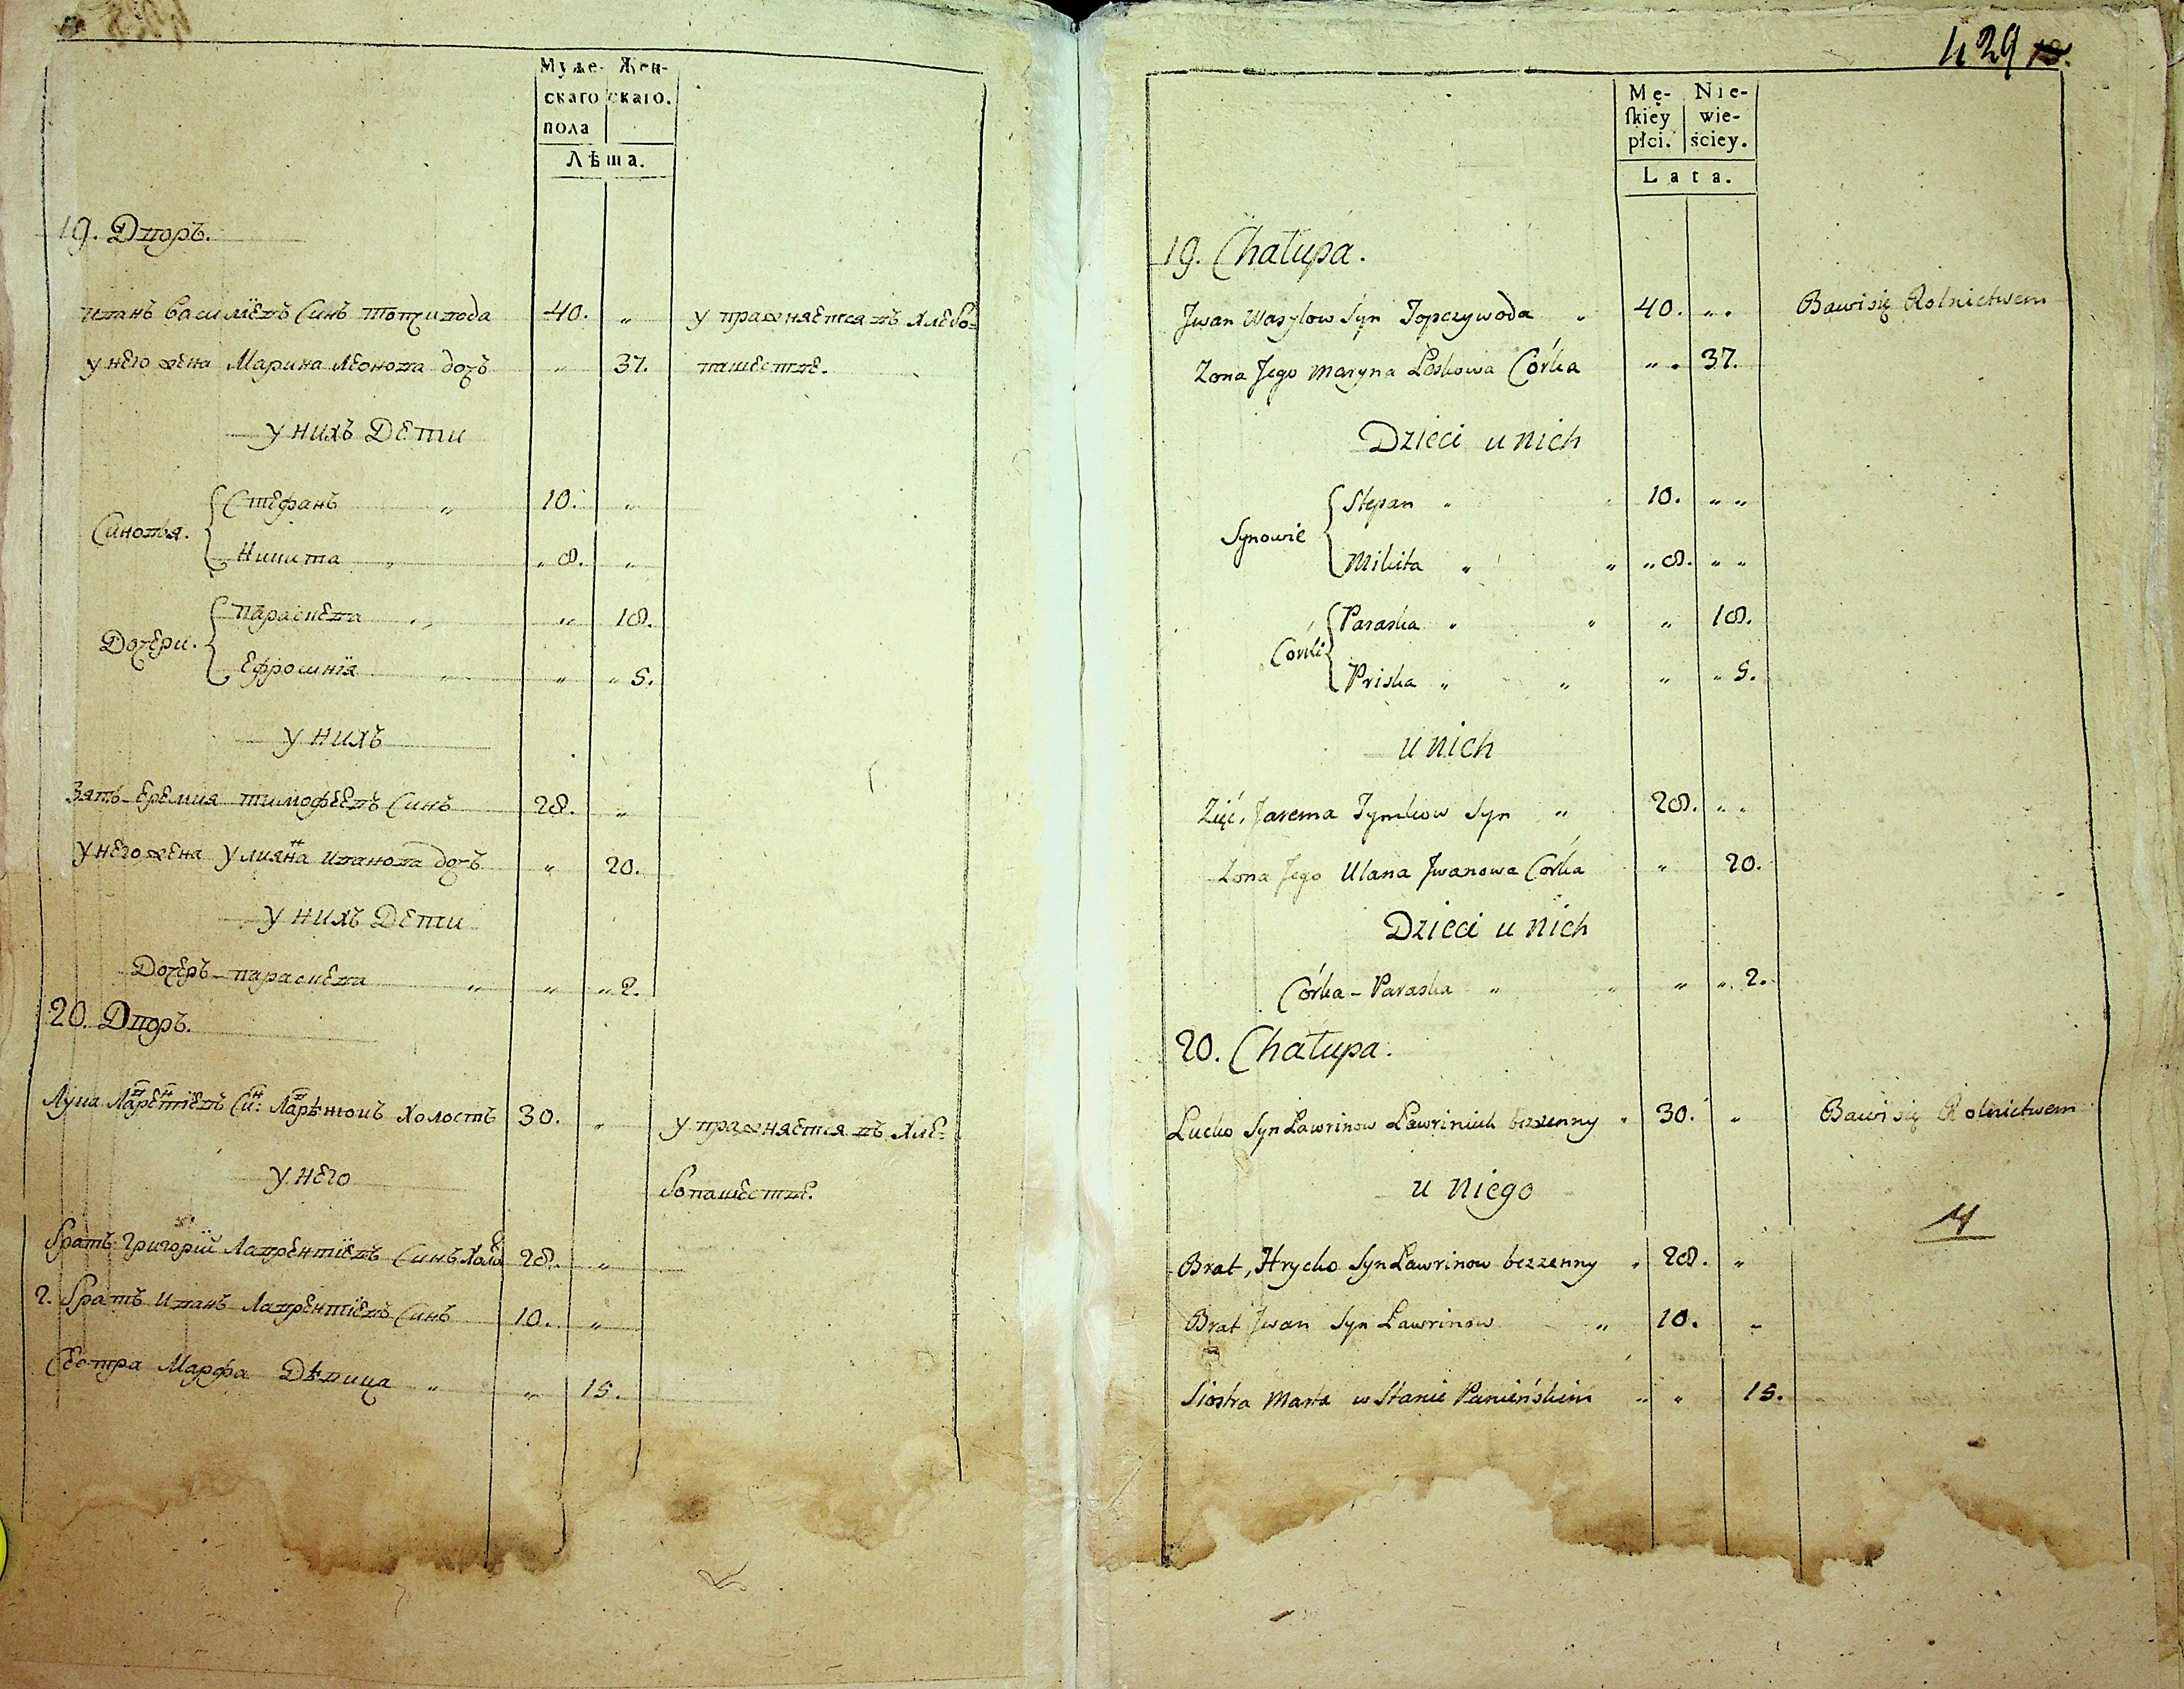 Муже- Жен-
скаго скаго.
пола
Лѣта.
19. Дворъ.
Иванъ Василіевъ Синъ Топчивода 40. „ упражняется въ хлебо-
у него жена Марина Леонова дочъ „ 37. пашестве.
у нихъ Дети
Синовья.
Стефанъ „ 10. „
Никита „ „ 8. „
Дочери.
Параскева „ „ 18.
Ефросинія „ „ „ 5.
у нихъ
Зять Еремия Тимофеевъ Синъ 28. „
у него жена Улияна Иванова дочъ „ 20.
у нихъ Дети
Дочеръ Параскева „ „ „ 2.
20. Дворъ.
Лука Лаврентіевъ Син: Лаврѣнюкъ Холостъ 30. „ упражняется въ хле-
у него бопашестве.
братъ Григорій Лаврентіевъ Синъ Холо 28. „
2. братъ Иванъ Лаврентіевъ Синъ 10. „
Сестра Марфа Дѣвица „ „ 15.
429
Mę- Nie-
ſkiey wie-
płci. ściey.
Lata.
19. Chałupa.
Jwan Wasylow Syn Topczywoda „ 40. „ „ Bawi się Rolnictwem
Zona Jego Maryna Leskowa Córka „ „ 37.
Dzieci u nich
Synowie
Stepan „ 10. „ „
Mikita „ „ „ 8. „ „
Corki
Paraska „ „ „ 18.
Priska „ „ „ „ 5.
u nich
Zięć, Jarema Tymkow Syn „ 28. „ „
Zona Jego Ulana Jwanowa Córka „ 20.
Dzieci u nich
Córka - Paraska „ „ „ „ 2.
20. Chałupa.
Lucko Syn Ławrinow Ławriniuk bezzenny „ 30. „ Bawi się Rolnictwem
u niego
Brat, Hrycko Syn Ławrinow bezzenny „ 28. „
Brat Jwan Syn Ławrinow „ 10. „
Siostra Marta w Stanie Panieńskim „ „ 15.